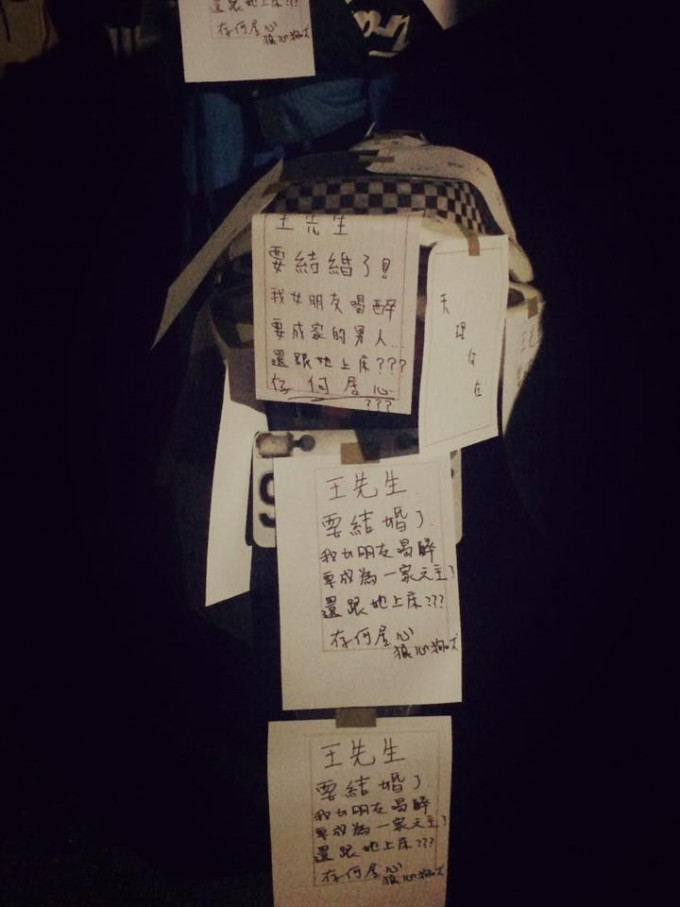 還跟她上床???
存何居心
狼心狗肺
王先生
要結婚了!!
我女朋友喝醉
要成家的男人..
還跟她上床???
存何居心
???
天理何在
王先生
9
王先生
要結婚了
我女朋友喝醉
要成為一家之主了
還跟她上床???
存何居心
狼心狗肺
王先生
要結婚了
我女朋友喝醉
要成為一家之主了
還跟她上床???
存何居心
狼心狗肺